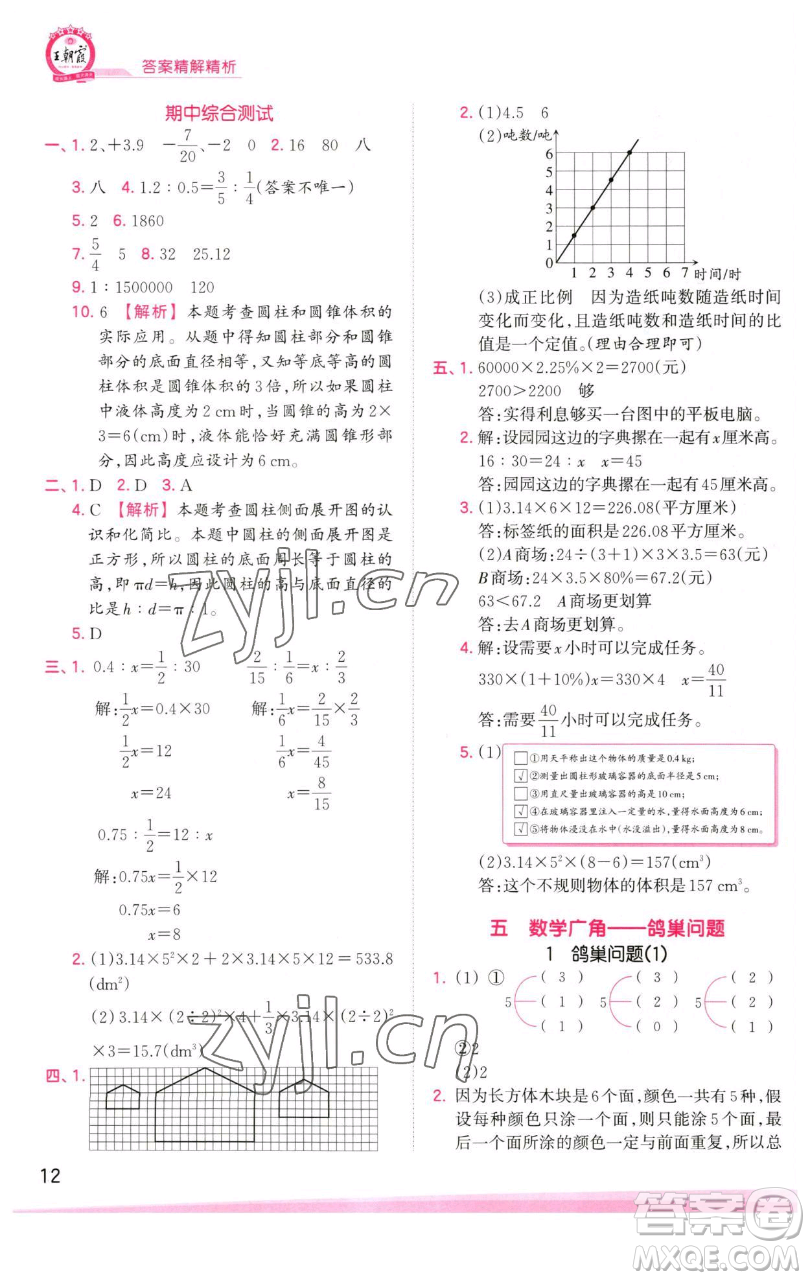 王朝霞
答案精解精析
期中综合测试
一、1. 2、+3.9 -7/20、-2 0 2. 16 80 八
3. 八 4. 1.2∶0.5=3/5∶1/4(答案不唯一)
5. 2 6. 1860
7. 5/4 5 8. 32 25.12
9. 1∶1500000 120
10. 6 【解析】本题考查圆柱和圆锥体积的
实际应用。从题中得知圆柱部分和圆锥
部分的底面直径相等,又知等底等高的圆
柱体积是圆锥体积的3倍,所以如果圆柱
中液体高度为2 cm时,当圆锥的高为2×
3=6(cm)时,液体能恰好充满圆锥形部
分,因此高度应设计为6 cm。
二、1. D 2. D 3. A
4. C 【解析】本题考查圆柱侧面展开图的认
识和化简比。本题中圆柱的侧面展开图是
正方形,所以圆柱的底面周长等于圆柱的
高,即πd=h,因此圆柱的高与底面直径的
比是h∶d=π∶1。
5. D
三、1. 0.4∶x=1/2∶30 2/15∶1/6=x∶2/3
解:1/2x=0.4×30 解:1/6x=2/15×2/3
1/2x=12 1/6x=4/45
x=24 x=8/15
0.75∶1/2=12∶x
解:0.75x=1/2×12
0.75x=6
x=8
2. (1)3.14×5²×2+2×3.14×5×12=533.8
(dm²)
(2)3.14×(2÷2)²×4+1/3×3.14×(2÷2)²
×3=15.7(dm³)
四、1.
12
2. (1)4.5 6
(2)吨数/吨
6
5
4
3
2
1
0
1 2 3 4 5 6 7 时间/时
(3)成正比例 因为造纸吨数随造纸时间
变化而变化,且造纸吨数和造纸时间的比
值是一个定值。(理由合理即可)
五、1. 60000×2.25%×2=2700(元)
2700>2200 够
答:实得利息够买一台图中的平板电脑。
2. 解:设园园这边的字典摞在一起有x厘米高。
16∶30=24∶x x=45
答:园园这边的字典摞在一起有45厘米高。
3. (1)3.14×6×12=226.08(平方厘米)
答:标签纸的面积是226.08平方厘米。
(2)A商场:24÷(3+1)×3×3.5=63(元)
B商场:24×3.5×80%=67.2(元)
63<67.2 A商场更划算
答:去A商场更划算。
4. 解:设需要x小时可以完成任务。
330×(1+10%)x=330×4 x=40/11
答:需要40/11小时可以完成任务。
5. (1)
□①用天平称出这个物体的质量是0.4 kg;
☑②测量出圆柱形玻璃容器的底面半径是5 cm;
□③用直尺量出玻璃容器的高是10 cm;
☑④在玻璃容器里注入一定量的水,量得水面高度为6 cm;
☑⑤将物体浸没在水中(水没溢出),量得水面高度为8 cm。
(2)3.14×5²×(8-6)=157(cm³)
答:这个不规则物体的体积是157 cm³。
五 数学广角——鸽巢问题
1 鸽巢问题(1)
1. (1) ① (3) (3) (2)
5 (1) 5 (2) 5 (2)
(1) (0) (1)
②2
(2)2
2. 因为长方体木块是6个面,颜色一共有5种,假
设每种颜色只涂一个面,则只能涂5个面,最
后一个面所涂的颜色一定与前面重复,所以总
zyjl.cn
zyjl.cn
答案圈
MXQE.COM